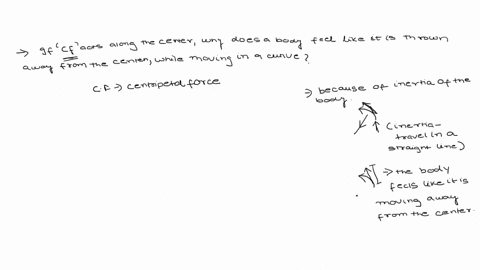 → If 'Cf' acts along the center, why does a body feel like it is thrown
away from the center, while moving in a curve?
C.F → centripetal force
→ because of inertia of the
body.
(inertia-
travel in a
straight line)
I
→ the body
feels like it is
moving away
from the center.